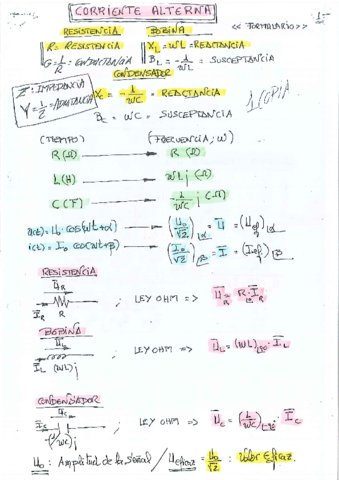 CORRIENTE ALTERNA
<< FORMULARIO >>
RESISTENCIA BOBINA
R = RESISTENCIA X_L = WL = REACTANCIA
G = 1/R = CONDUCTANCIA B_L = -1/WL = SUSCEPTANCIA
CONDENSADOR
Z: IMPEDANCIA
Y = 1/Z = ADMITANCIA
X_C = -1/WC = REACTANCIA
B_C = WC = SUSCEPTANCIA
1 COPIA
(TIEMPO) (FRECUENCIA; W)
R (Ω) → R (Ω)
L (H) → WLj (Ω)
C (F) → -1/WC j (Ω)
u(t) = U₀ cos(wt+α) → (U₀/√2)∠α = U = (Uef)∠α
i(t) = I₀ cos(wt+β) → (I₀/√2)∠β = I = (Ief)∠β
RESISTENCIA
U_R
R
I_R
; LEY OHM => U_R = R · I_R
BOBINA
U_L
I_L (WL)j
; LEY OHM => U_L = (WL)∠90º · I_L
CONDENSADOR
U_C
I_C
-(1/WC)j
; LEY OHM => U_C = (1/WC)∠-90º · I_C
U₀: Amplitud de la señal / Ueficaz = U₀/√2 : Valor Eficaz.